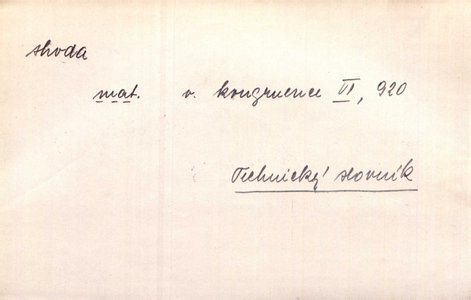 shoda
mat. v. kongruence VI, 920
Technický slovník